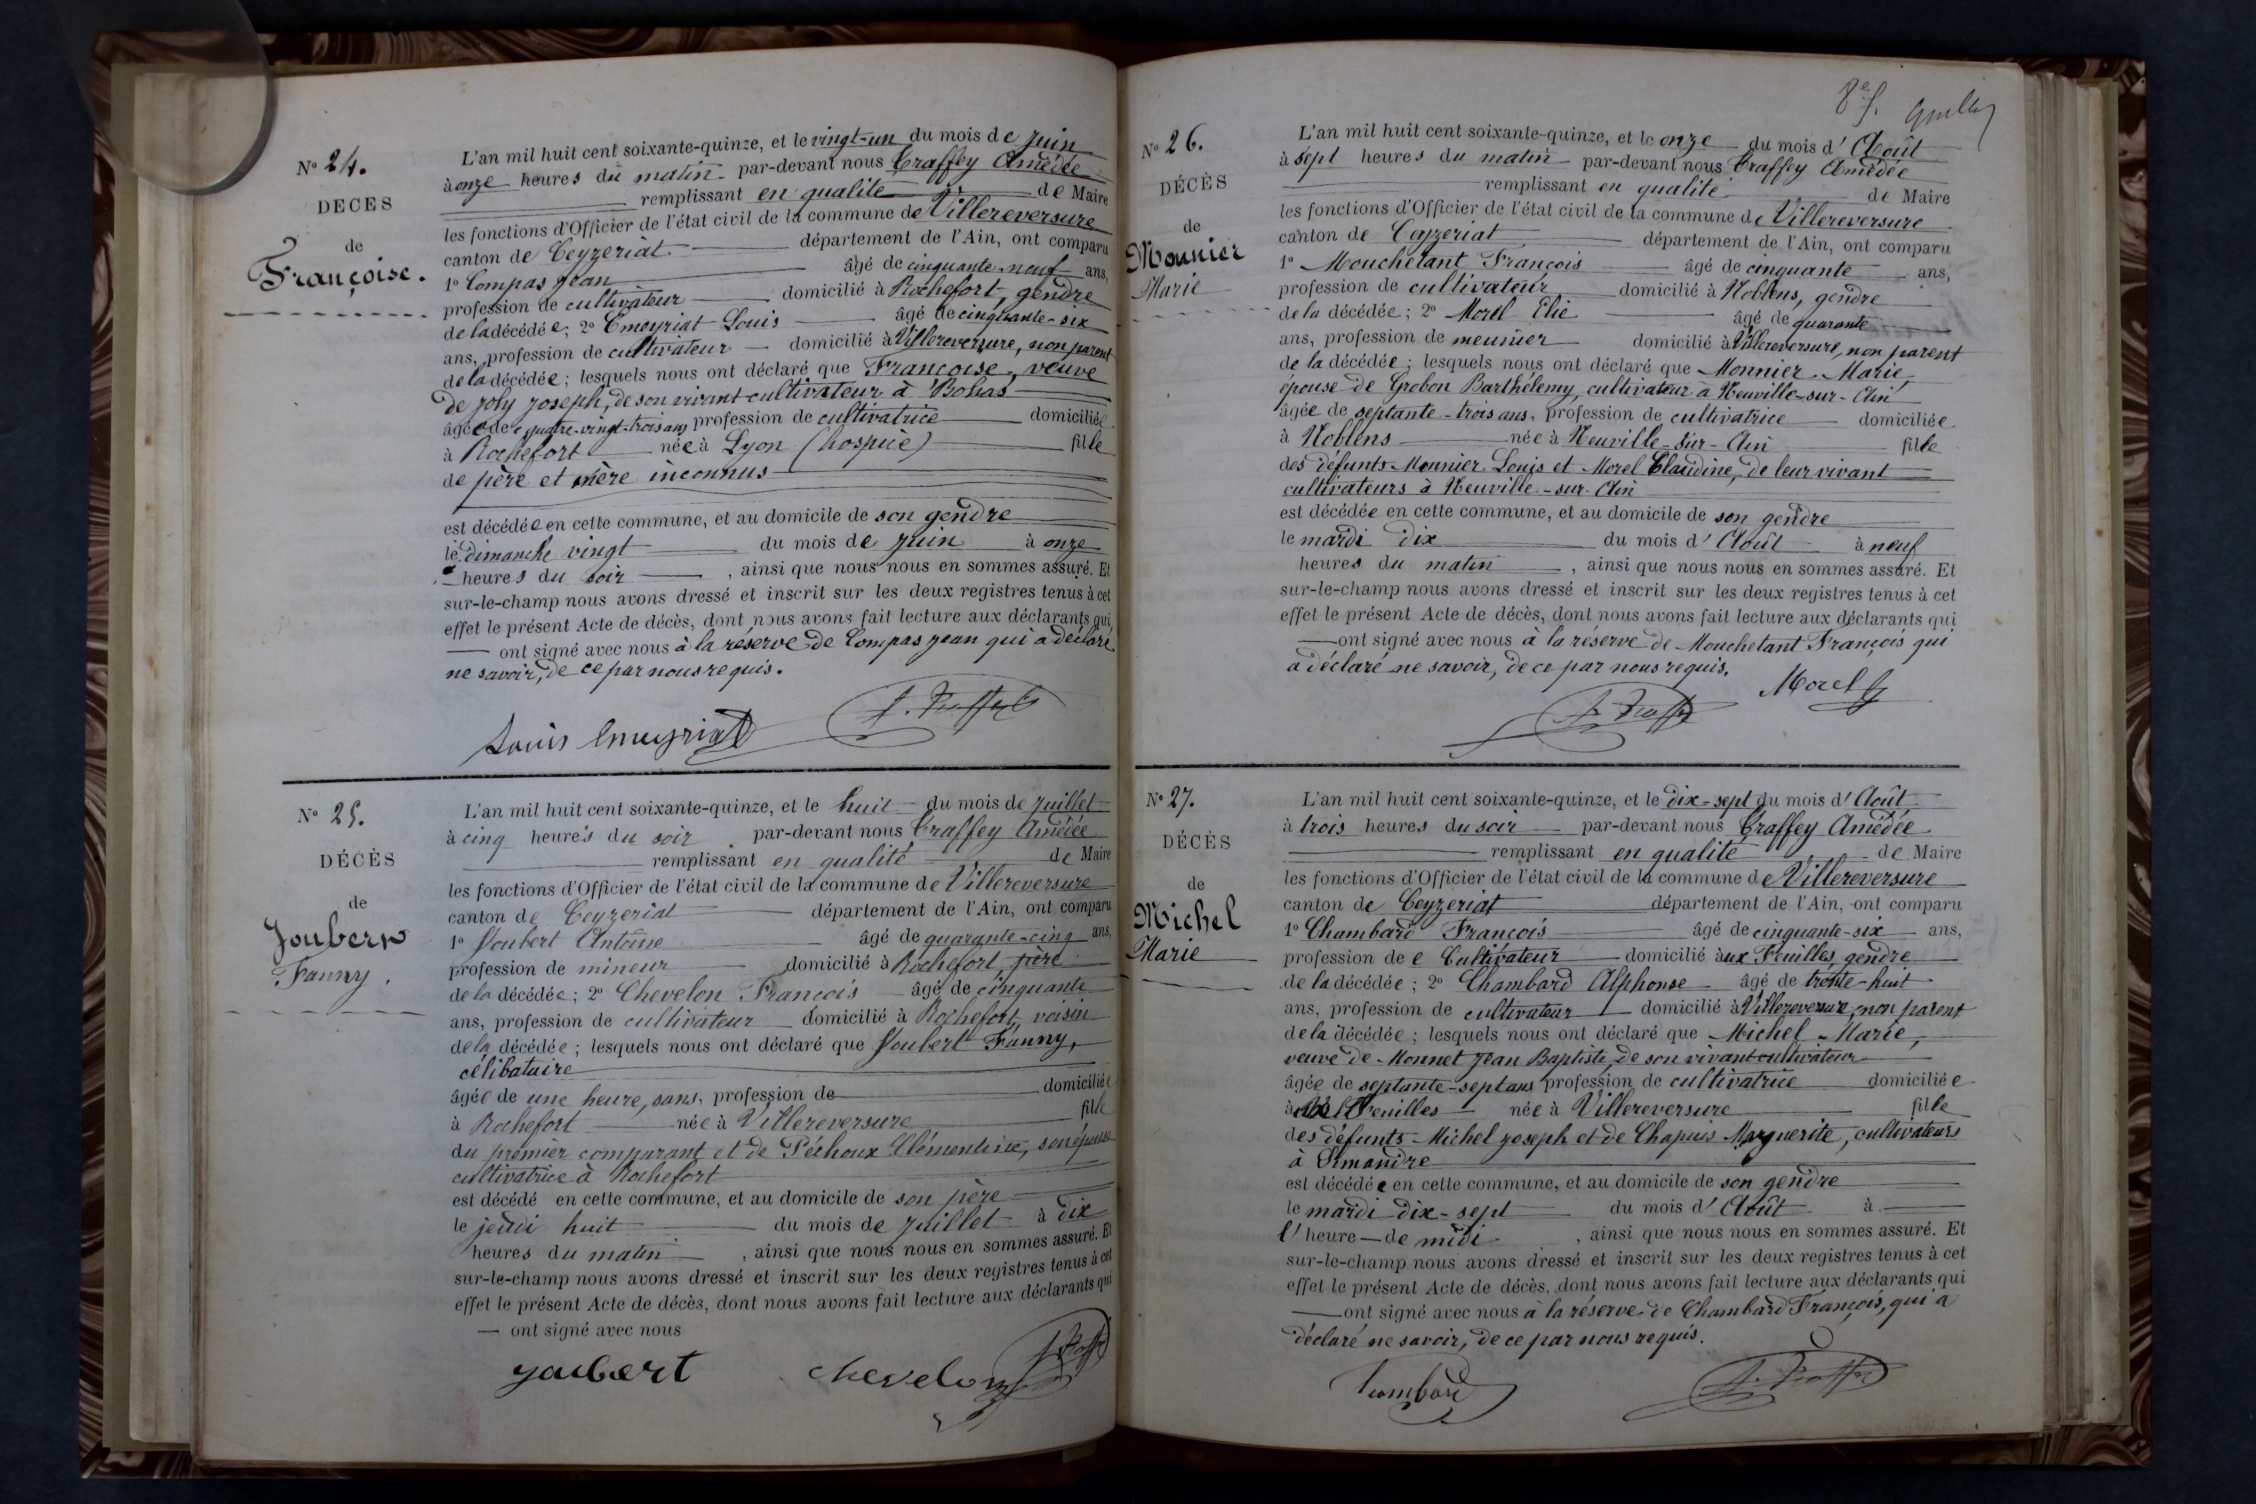 N° 24.
DÉCÈS
de
Françoise.
L'an mil huit cent soixante-quinze, et le vingt-un du mois de Juin
à onze heures du matin par-devant nous Traffey Amédée
remplissant en qualité de Maire
les fonctions d'Officier de l'état civil de la commune de Villereversure
canton de Ceyzeriat département de l'Ain, ont comparu
1° Compas Jean âgé de cinquante-neuf ans,
profession de cultivateur domicilié à Rochefort, gendre
de la décédée; 2° Emeyriat Louis âgé de cinquante-six
ans, profession de cultivateur domicilié à Villereversure, non parent
de la décédée; lesquels nous ont déclaré que Françoise, veuve
de Joly Joseph, de son vivant cultivateur à Bohas
âgée de quatre-vingt-trois ans profession de cultivatrice domiciliée
à Rochefort née à Lyon (hospice) fille
de père et mère inconnus
est décédée en cette commune, et au domicile de son gendre
le dimanche vingt du mois de Juin à onze
heures du soir, ainsi que nous nous en sommes assuré. Et
sur-le-champ nous avons dressé et inscrit sur les deux registres tenus à cet
effet le présent Acte de décès, dont nous avons fait lecture aux déclarants qui
ont signé avec nous à la réserve de Compas Jean qui a déclaré
ne savoir, de ce par nous requis.
Louis Emeyriat
N° 25.
DÉCÈS
de
Joubert
Fanny.
L'an mil huit cent soixante-quinze, et le huit du mois de Juillet
à cinq heures du soir par-devant nous Traffey Amédée
remplissant en qualité de Maire
les fonctions d'Officier de l'état civil de la commune de Villereversure
canton de Ceyzeriat département de l'Ain, ont comparu
1° Joubert Antoine âgé de quarante-cinq ans,
profession de mineur domicilié à Rochefort, père
de la décédée; 2° Chevelon François âgé de cinquante
ans, profession de cultivateur domicilié à Rochefort, voisin
de la décédée; lesquels nous ont déclaré que Joubert Fanny,
célibataire
âgée de une heure, sans, profession de domiciliée
à Rochefort née à Villereversure fille
du premier comparant et de Péchoux Clémentine, son épouse
cultivatrice à Rochefort
est décédé en cette commune, et au domicile de son père
le jeudi huit du mois de Juillet à dix
heures du matin, ainsi que nous nous en sommes assuré. Et
sur-le-champ nous avons dressé et inscrit sur les deux registres tenus à cet
effet le présent Acte de décès, dont nous avons fait lecture aux déclarants qui
ont signé avec nous
Joubert Chevelon
8e f.
N° 26.
DÉCÈS
de
Monnier
Marie
L'an mil huit cent soixante-quinze, et le onze du mois d'Août
à sept heures du matin par-devant nous Traffey Amédée
remplissant en qualité de Maire
les fonctions d'Officier de l'état civil de la commune de Villereversure
canton de Ceyzeriat département de l'Ain, ont comparu
1° Mouchetant François âgé de cinquante ans,
profession de cultivateur domicilié à Noblens, gendre
de la décédée; 2° Morel Elie âgé de quarante
ans, profession de meunier domicilié à Villereversure, non parent
de la décédée; lesquels nous ont déclaré que Monnier Marie,
épouse de Grobon Barthélemy, cultivateur à Neuville-sur-Ain
âgée de septante-trois ans, profession de cultivatrice domiciliée
à Noblens née à Neuville-sur-Ain fille
des défunts Monnier Louis et Morel Claudine, de leur vivant
cultivateurs à Neuville-sur-Ain
est décédée en cette commune, et au domicile de son gendre
le mardi dix du mois d'Août à neuf
heures du matin, ainsi que nous nous en sommes assuré. Et
sur-le-champ nous avons dressé et inscrit sur les deux registres tenus à cet
effet le présent Acte de décès, dont nous avons fait lecture aux déclarants qui
ont signé avec nous à la réserve de Mouchetant François qui
a déclaré ne savoir, de ce par nous requis.
Morel
N° 27.
DÉCÈS
de
Michel
Marie
L'an mil huit cent soixante-quinze, et le dix-sept du mois d'Août
à trois heures du soir par-devant nous Traffey Amédée
remplissant en qualité de Maire
les fonctions d'Officier de l'état civil de la commune de Villereversure
canton de Ceyzeriat département de l'Ain, ont comparu
1° Chambard François âgé de cinquante-six ans,
profession de Cultivateur domicilié aux Feuilles, gendre
de la décédée; 2° Chambard Alphonse âgé de trente-huit
ans, profession de cultivateur domicilié à Villereversure, non parent
de la décédée; lesquels nous ont déclaré que Michel Marie,
veuve de Monnet Jean Baptiste, de son vivant cultivateur
âgée de septante-sept ans profession de cultivatrice domiciliée
à née à Villereversure fille
des défunts Michel Joseph et de Chapuis Marguerite, cultivateurs
à Simandre
est décédée en cette commune, et au domicile de son gendre
le mardi dix-sept du mois d'Août à
l'heure de midi, ainsi que nous nous en sommes assuré. Et
sur-le-champ nous avons dressé et inscrit sur les deux registres tenus à cet
effet le présent Acte de décès, dont nous avons fait lecture aux déclarants qui
ont signé avec nous à la réserve de Chambard François, qui a
déclaré ne savoir, de ce par nous requis.